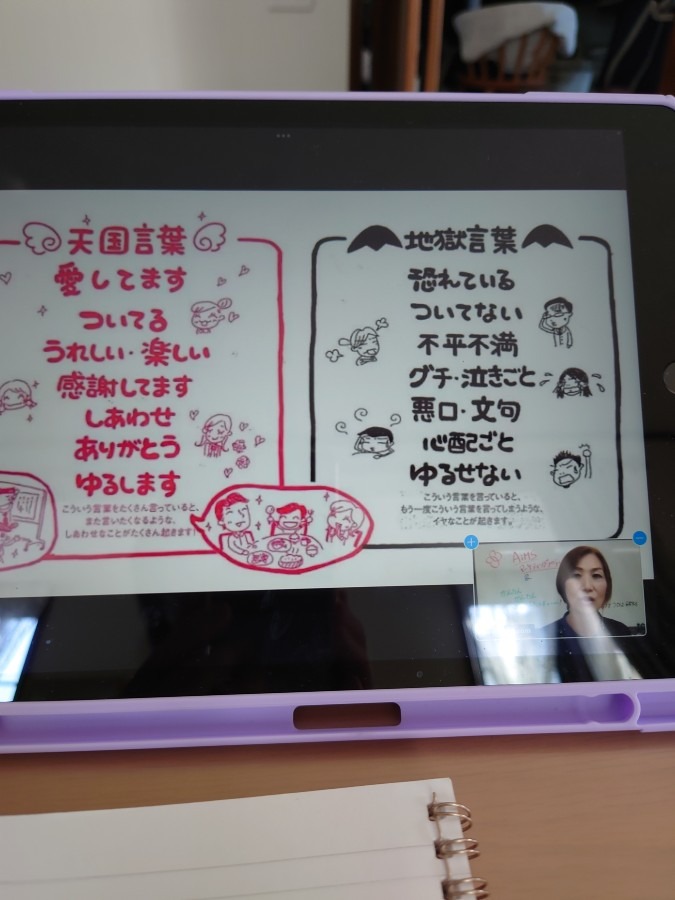 天国言葉
愛してます
ついてる
うれしい・楽しい
感謝してます
しあわせ
ありがとう
ゆるします
こういう言葉をたくさん言っていると、
また言いたくなるような、
しあわせなことがたくさん起きます!
地獄言葉
恐れている
ついてない
不平不満
グチ・泣きごと
悪口・文句
心配ごと
ゆるせない
こういう言葉を言っていると、
もう一度こういう言葉を言ってしまうような、
イヤなことが起きます。